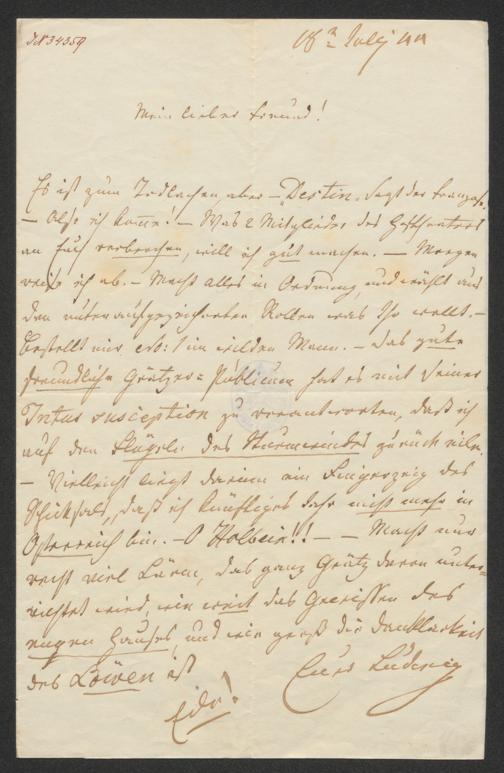 I.N 34359
18n July
Mein lieber Freund!
Es ist zum Todlachen, aber – Destin, sagt der Franzose.
– Also ich komme! – Was 2 Mitglieder des Hoftheaters
an Euch verbrochen, will ich gut machen. – Morgen
reise ich ab. – Macht alles in Ordnung, und wählt aus
den unten aufgezeichneten Rollen was Ihr wollt. –
Bestellt mir im wilden Mann. – Das gute
freundliche Grätzer-Publicum hat es mit seiner
Intus susception zu verantworten, daß ich
auf den Flügeln des Sturmwindes zurück eile.
– Vielleicht liegt darinn ein Fingerzeig des
Schicksals, daß ich künftiges Jahr nicht mehr in
Österreich bin. – O Holbein!! – – Macht nur
recht viel Lärm, daß ganz Grätz davon unter-
richtet wird, wie weit das Gewissen des
Hauses, und wie groß die Dankbarkeit
des Löwen ist
Euer Ludwig